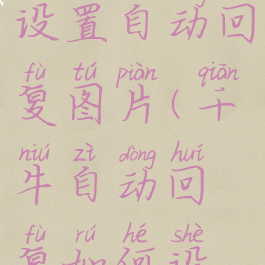 设置自动回
fù tú piàn qiān
复图片(千
niú zì dòng huí
牛自动回
fù rú hé shè
复如何设